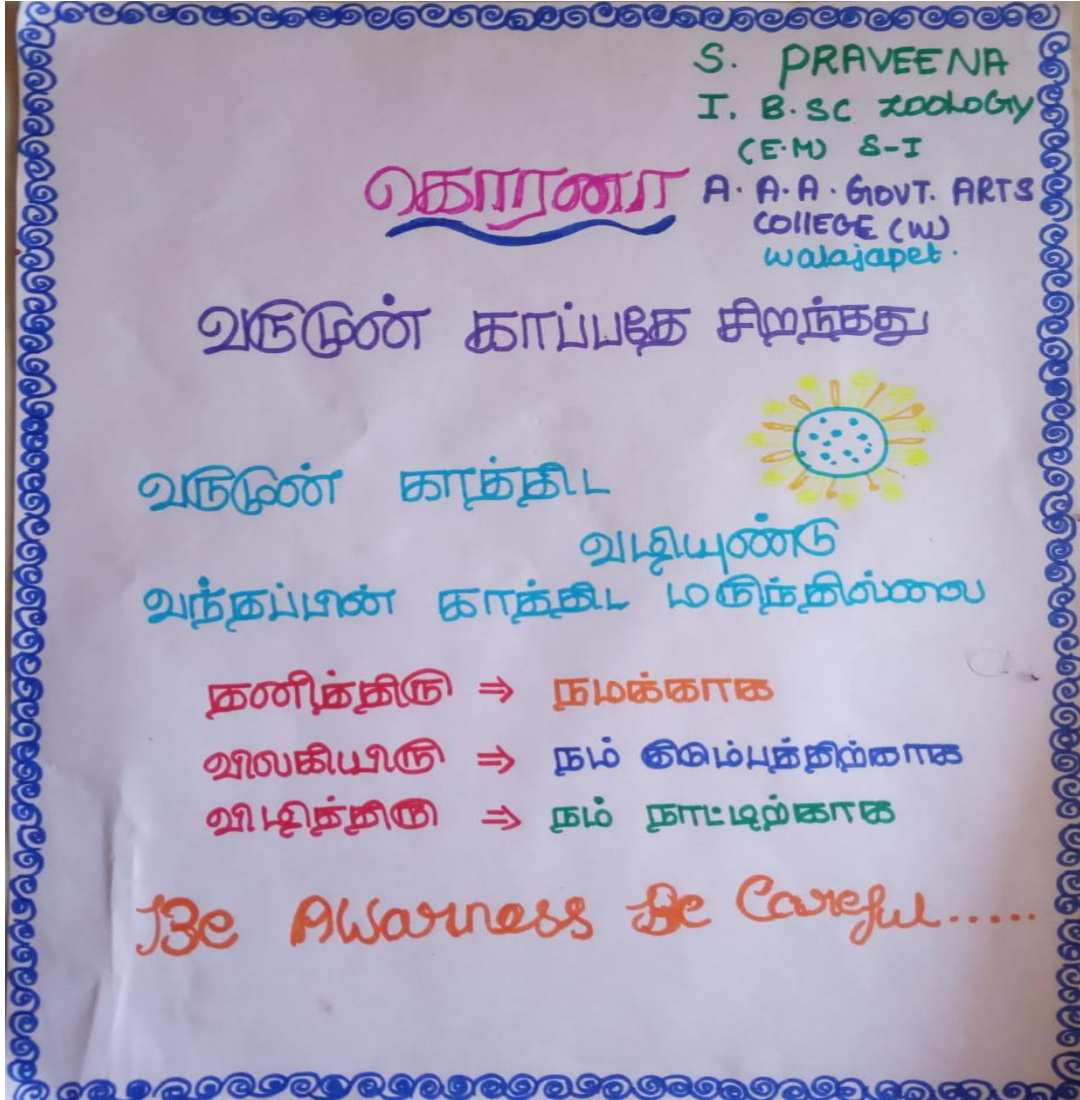 S. PRAVEENA
I. B.SC ZOOLOGY
(E.M) S-I
A. A. A. GOVT. ARTS
COllEGE (W)
walajapet.
கொரனா
வருமுன் காப்பதே சிறந்தது
வருமுன் காத்திட
வழியுண்டு
வந்தப்பின் காத்திட மருந்தில்லை
தனித்திரு ⇒ நமக்காக
விலகியிரு ⇒ நம் குடும்பத்திற்காக
விழித்திரு ⇒ நம் நாட்டிற்காக
Be AWarness Be Careful.....